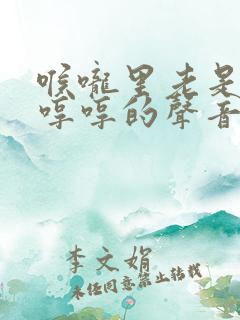 喉嚨里老是
哼哼的聲音
李文娟
未經同意禁止轉載